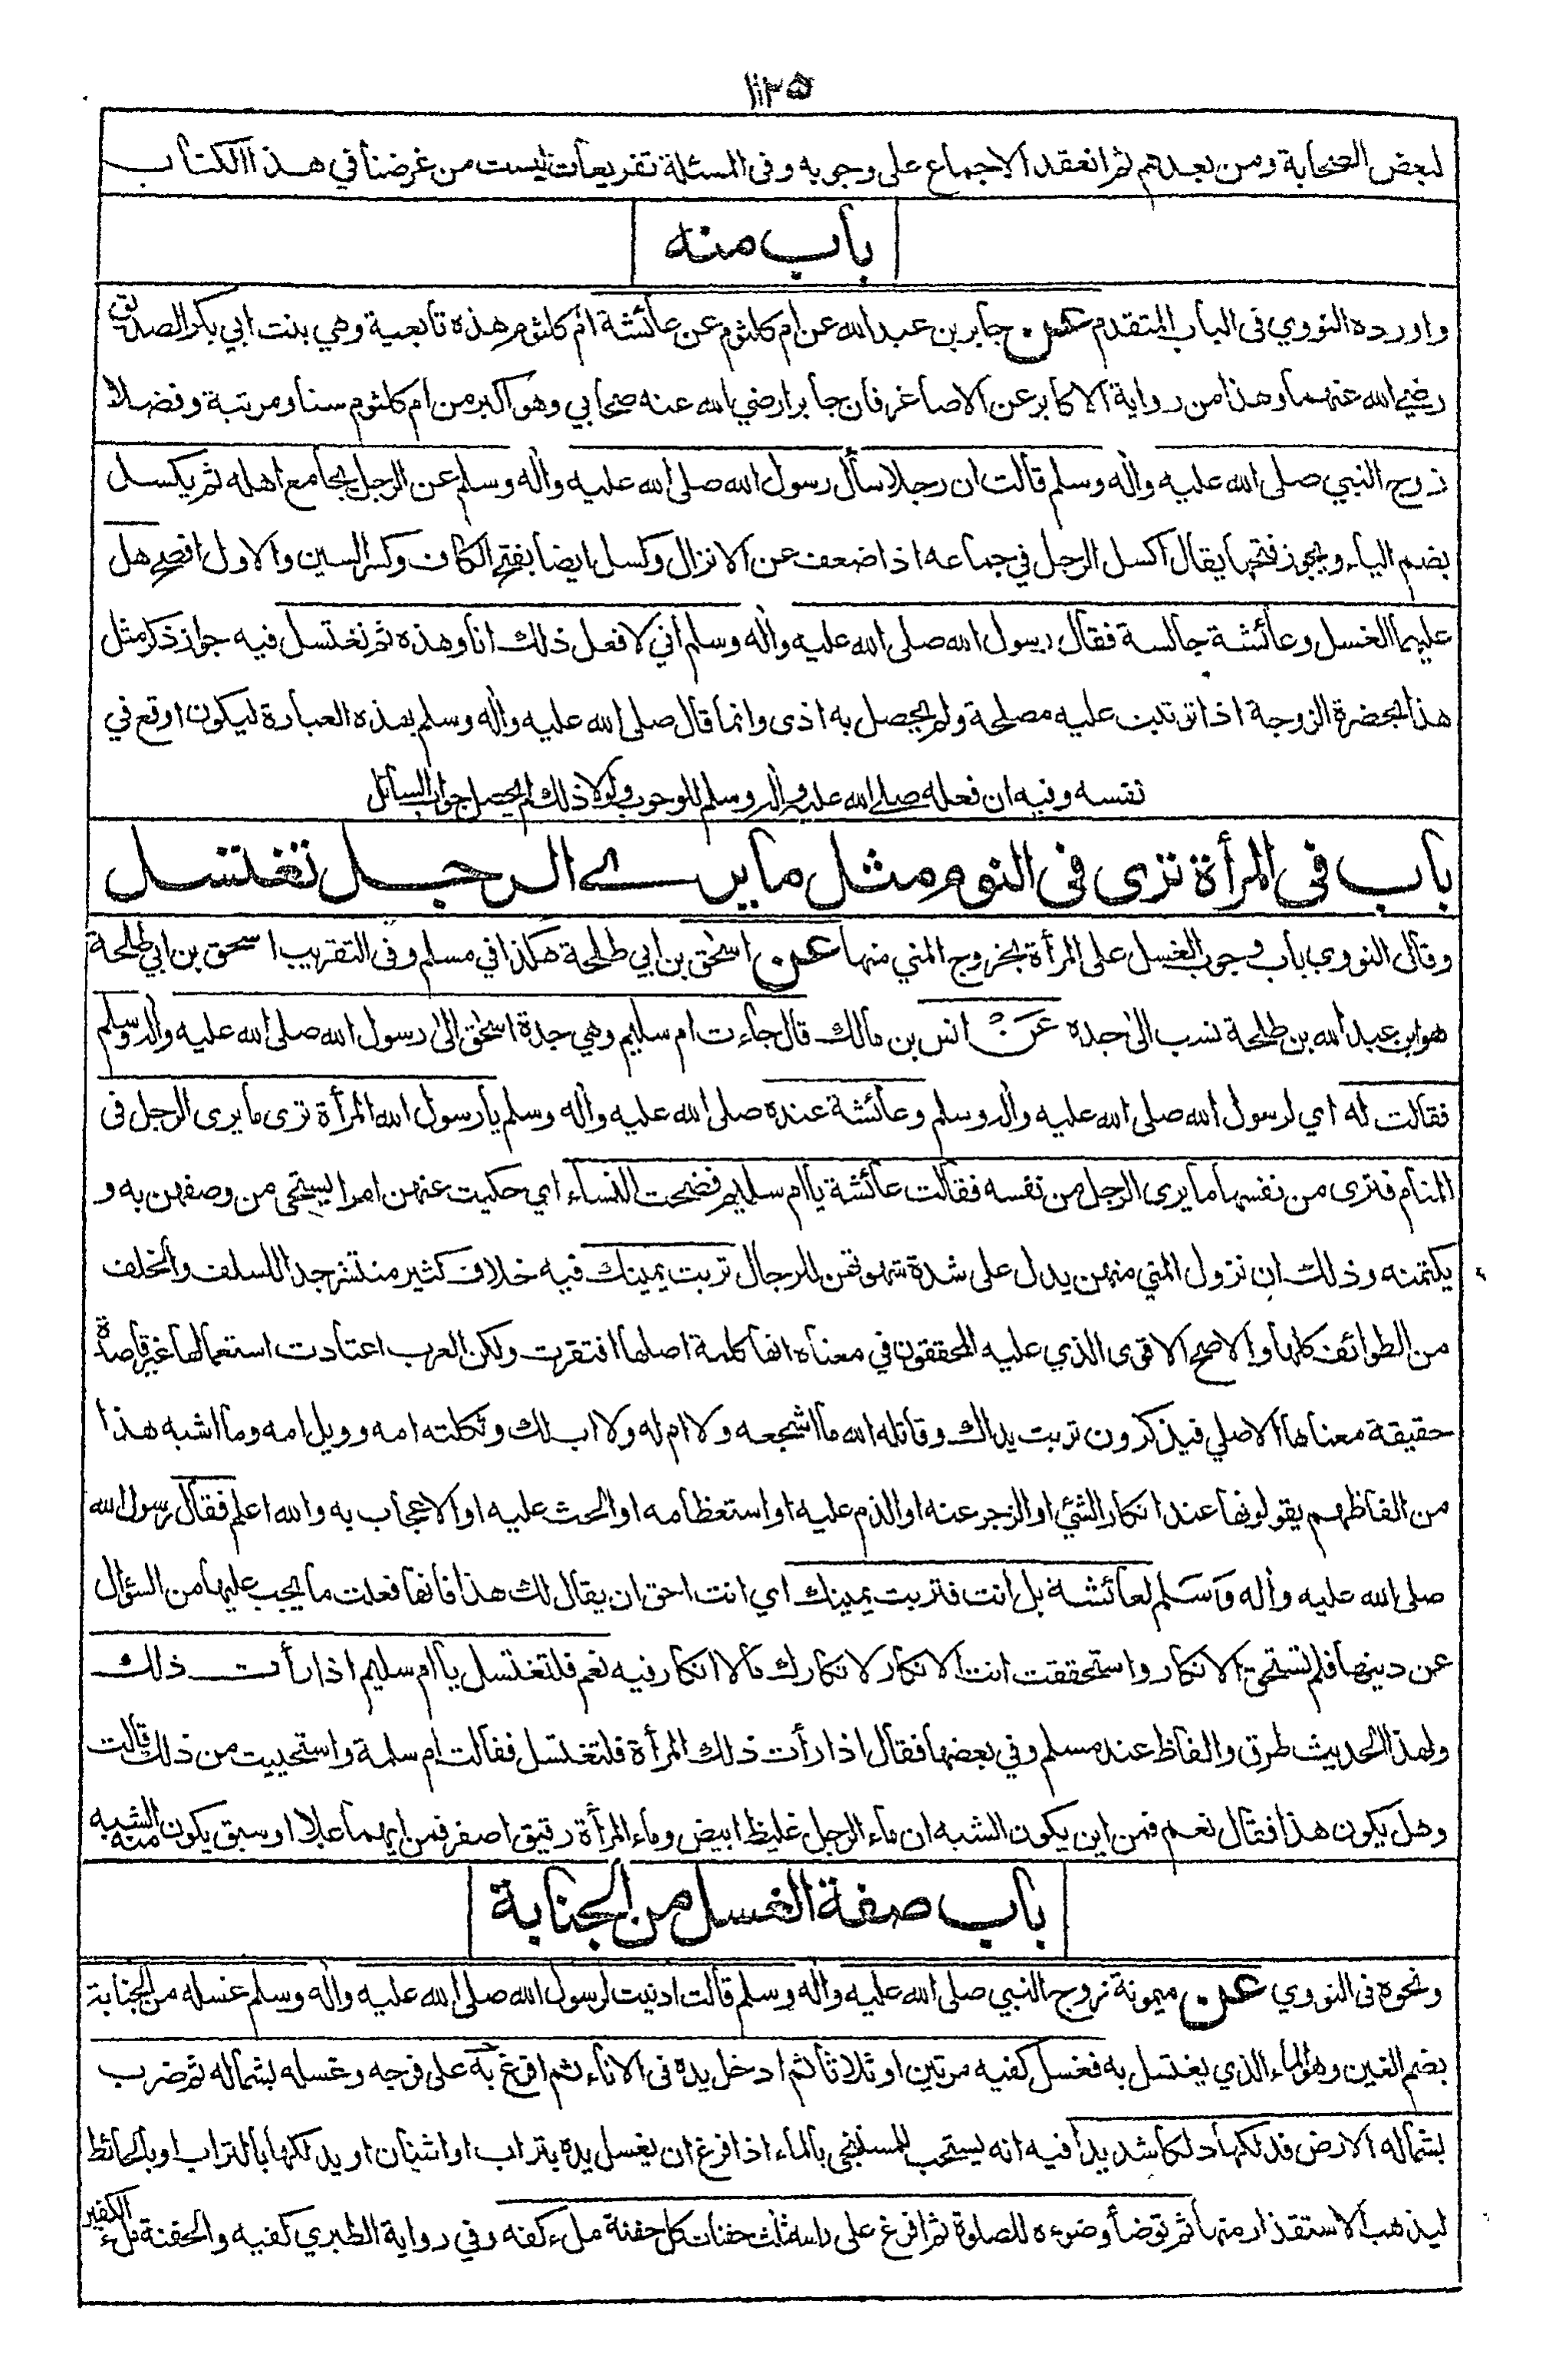 ١١٢٥
لبعض الصحابة ومن بعدهم ثم انعقد الاجماع على وجوبه وفى المسئلة تفريعات ليست من غرضنا في هذا الكتاب
باب منه
واورده النووي فى الباب المتقدم عن جابر بن عبد الله عن ام كلثوم عن عائشة ام كلثوم هذه تابعية وهي بنت ابي بكر الصديق
رضي الله عنهما وهذا من رواية الاكابر عن الاصاغر فان جابرا رضي الله عنه صحابي وهو اكبر من ام كلثوم سنا ومرتبة وفضلا
زوج النبي صلى الله عليه واله وسلم قالت ان رجلا سأل رسول الله صلى الله عليه واله وسلم عن الرجل يجامع اهله ثم يكسل
بضم الياء ويجوز فتحها يقال اكسل الرجل في جماعه اذا ضعف عن الانزال وكسل ايضا بفتح الكاف وكسر السين والاول افصح هل
عليهما الغسل وعائشة جالسة فقال رسول الله صلى الله عليه واله وسلم اني لافعل ذلك انا وهذه ثم نغتسل فيه جواز ذكر مثل
هذا بحضرة الزوجة اذا ترتبت عليه مصلحة ولم يحصل به اذى وانما قال صلى الله عليه واله وسلم بهذه العبارة ليكون اوقع في
نفسه وفيه ان فعله صلى الله عليه واله وسلم للوجوب ولولا ذلك لم يحصل جواب السائل
باب فى المرأة ترى فى النوم مثل ما يرى الرجل تغتسل
وقال النووي باب وجوب الغسل على المرأة بخروج المني منها عن اسحق بن ابي طلحة هكذا في مسلم وفى التقريب اسحق بن ابي طلحة
هو ابن عبد الله بن طلحة نسب الى جده عَنْ انس بن مالك قال جاءت ام سليم وهي جدة اسحق الى رسول الله صلى الله عليه واله وسلم
فقالت له اي لرسول الله صلى الله عليه واله وسلم وعائشة عنده صلى الله عليه واله وسلم يا رسول الله المرأة ترى ما يرى الرجل فى
المنام فترى من نفسها ما يرى الرجل من نفسه فقالت عائشة يا ام سليم فضحت النساء اي حكيت عنهن امرا يستحى من وصفهن به و
يكتمنه وذلك ان نزول المني منهن يدل على شدة شهوتهن للرجال تربت يمينك فيه خلاف كثير منتشر جدا للسلف والخلف
من الطوائف كلها والاصح الاقوى الذي عليه المحققون في معناه انها كلمة اصلها افتقرت ولكن العرب اعتادت استعمالها غير قاصدة
حقيقة معناها الاصلي فيذكرون تربت يداك وقاتله الله ما اشجعه ولا ام له ولا اب لك وثكلته امه وويل امه وما اشبه هذا
من الفاظهم يقولونها عند انكار الشئ او الزجر عنه او الذم عليه او استعظامه او الحث عليه او الاعجاب به والله اعلم فقال رسول الله
صلى الله عليه واله وَسَلم لعائشة بل انت فتربت يمينك اي انت احق ان يقال لك هذا فانها فعلت ما يجب عليها من السؤال
عن دينها فلم تستحق الانكار واستحققت انت الانكار لانكارك ما لا انكار فيه نعم فلتغتسل يا ام سليم اذا رأت ذلك
ولهذا الحديث طرق والفاظ عند مسلم وفي بعضها فقال اذا رأت ذلك المرأة فلتغتسل فقالت ام سلمة واستحييت من ذلك قالت
وهل يكون هذا فقال نعم فمن اين يكون الشبه ان ماء الرجل غليظ ابيض وماء المرأة رقيق اصفر فمن ايهما علا او سبق يكون منه الشبه
باب صفة الغسل من الجنابة
ونحوه فى النووي عن ميمونة زوج النبي صلى الله عليه واله وسلم قالت ادنيت لرسول الله صلى الله عليه واله وسلم غسله من الجنابة
بضم الغين وهو الماء الذي يغتسل به فغسل كفيه مرتين او ثلاثا ثم ادخل يده فى الاناء ثم افرغ به على فرجه وغسله بشماله ثم ضرب
بشماله الارض فدلكها دلكا شديدا فيه انه يستحب للمستنجى بالماء اذا فرغ ان يغسل يده بتراب او اشنان او يدلكها بالتراب او بالحائط
ليذهب الاستقذار منها ثم توضأ وضوءه للصلوة ثم افرغ على راسه ثلث حفنات كل حفنة ملء كفه وفي رواية الطبري كفيه والحفنة ملء الكفين